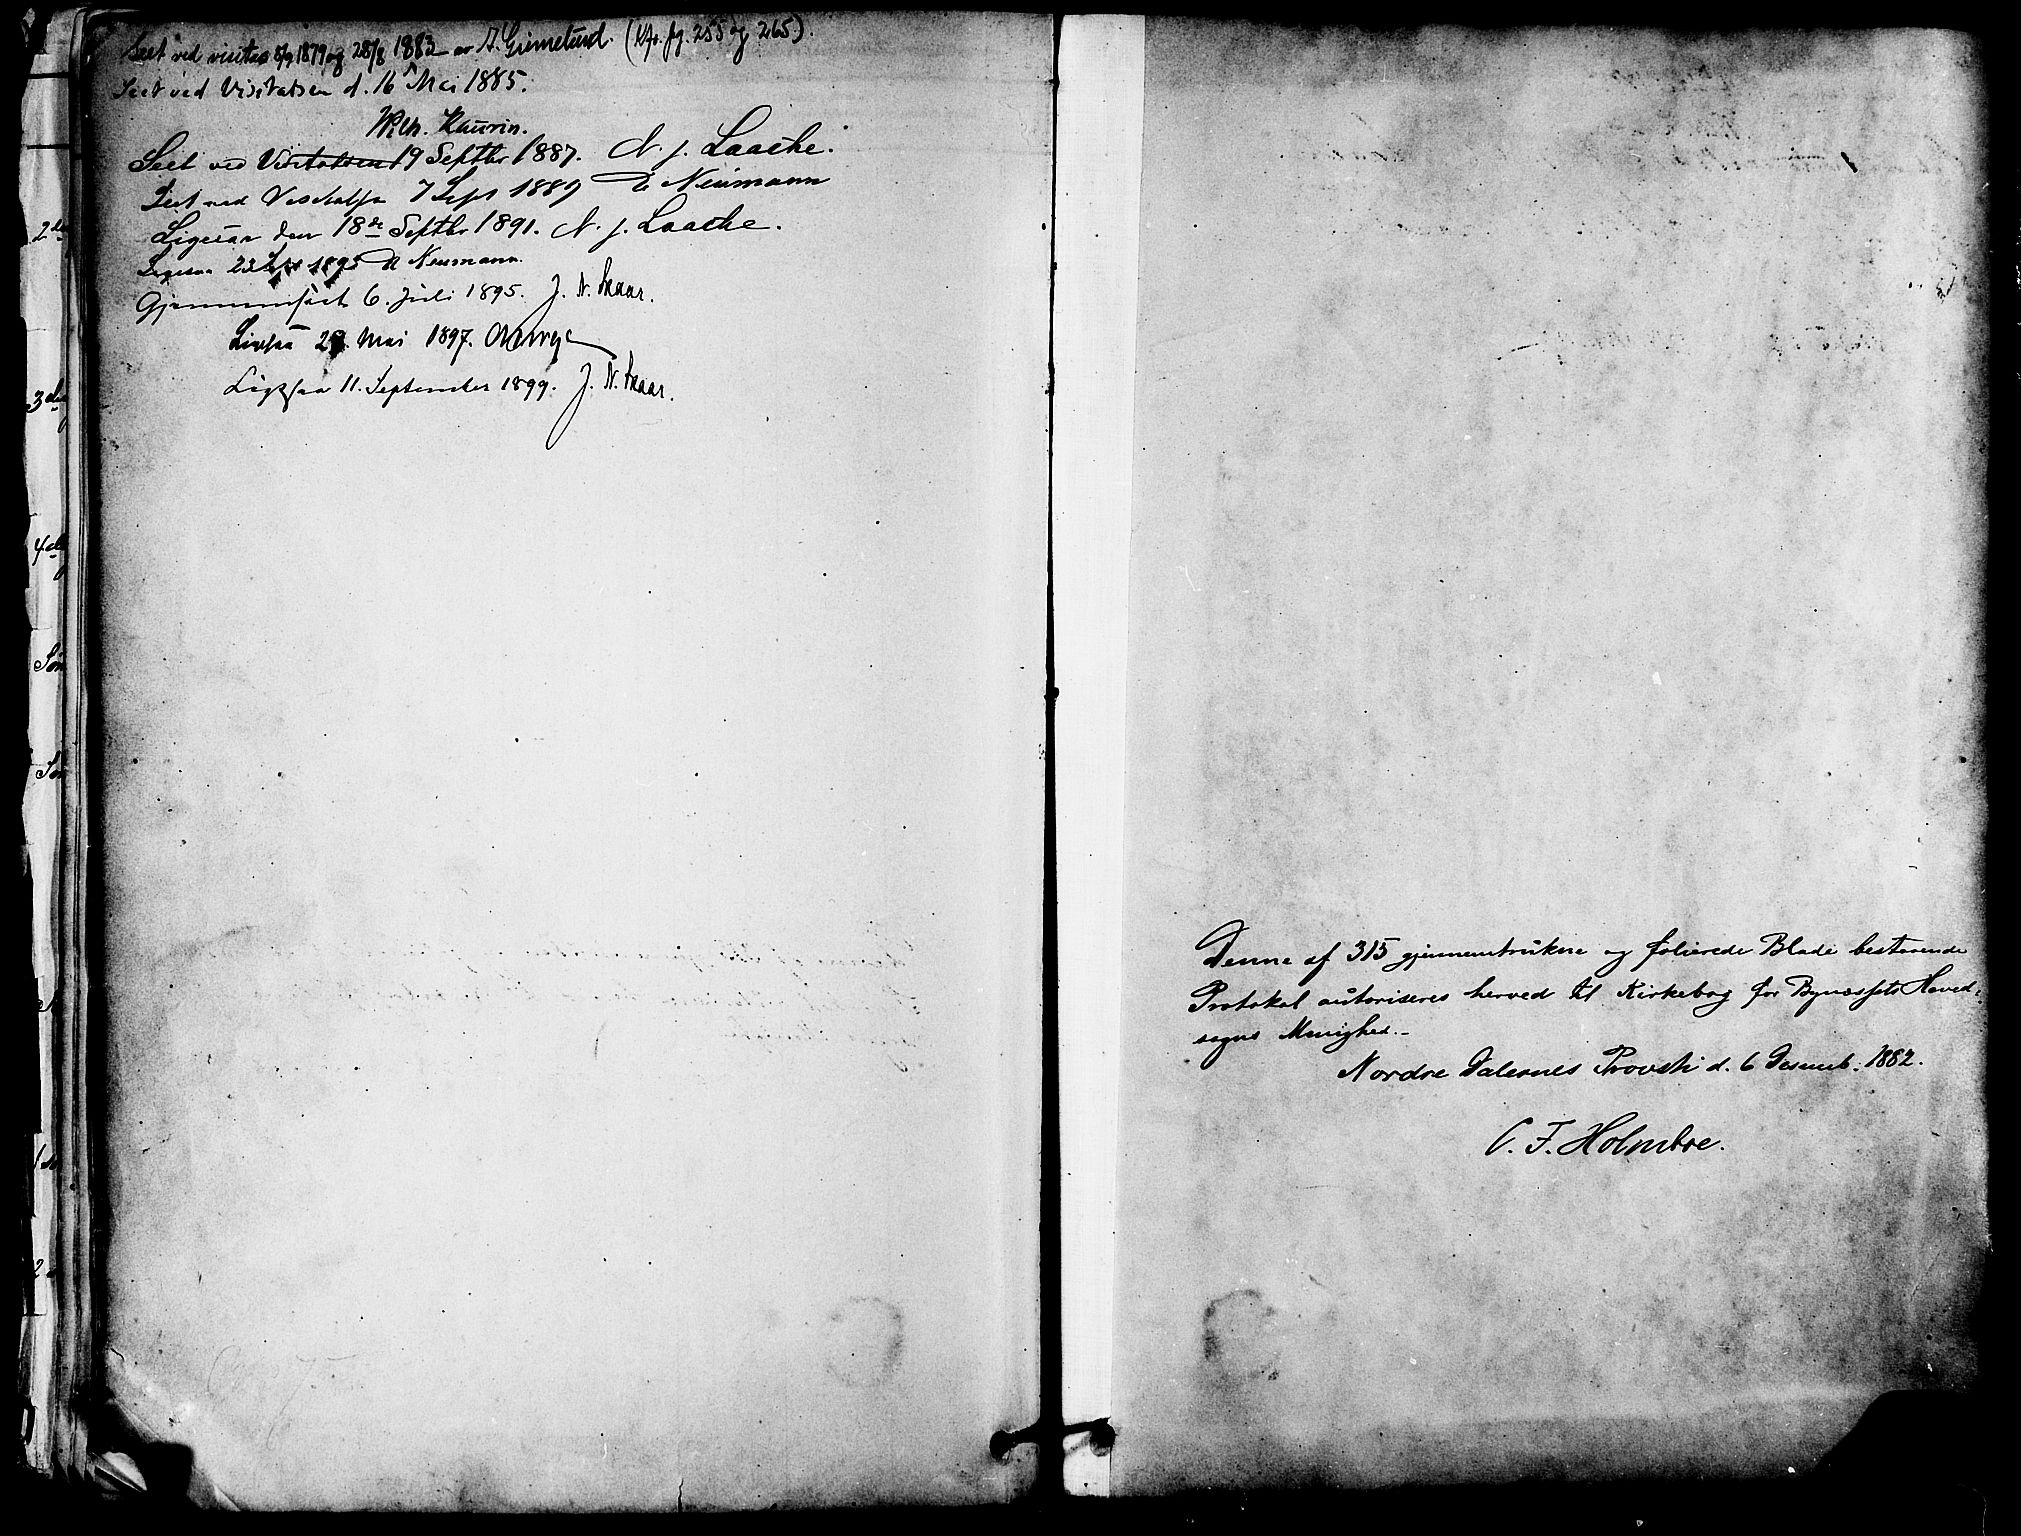 Seet ved visitas 8/9 1879 og 28/8 1883 av A. Grimelund. (Kfr. fg. 255 og 265).
Seet ved Visitatsen d. 16 Mai 1885.
Wilh. Khurin.
Seet ved Visitatsen 19 Septbr 1887. N. J. Laache.
Seet ved Visitatsen 7 Sept 1889 Neumann
Ligesaa den 18de Septbr 1891. N. J. Laache.
Ligesaa 23 Sept 1893 Neumann
Gjennemseet 6. Juli 1895. J. N. Skaar.
Ligesaa Mai 1897.
Ligesaa 11. September 1899. J. N. Skaar.
2de
3die
4de
Søn
Søn
Denne af 315 gjennemtrukne og folierede Blade bestaaende
Protokol autoriseres herved til Kirkebog for Bynæssets Hoved-
sogns Menighed.-
Nordre Dalernes Provsti d. 6 Decemb. 1882.
C. F. Holmboe.